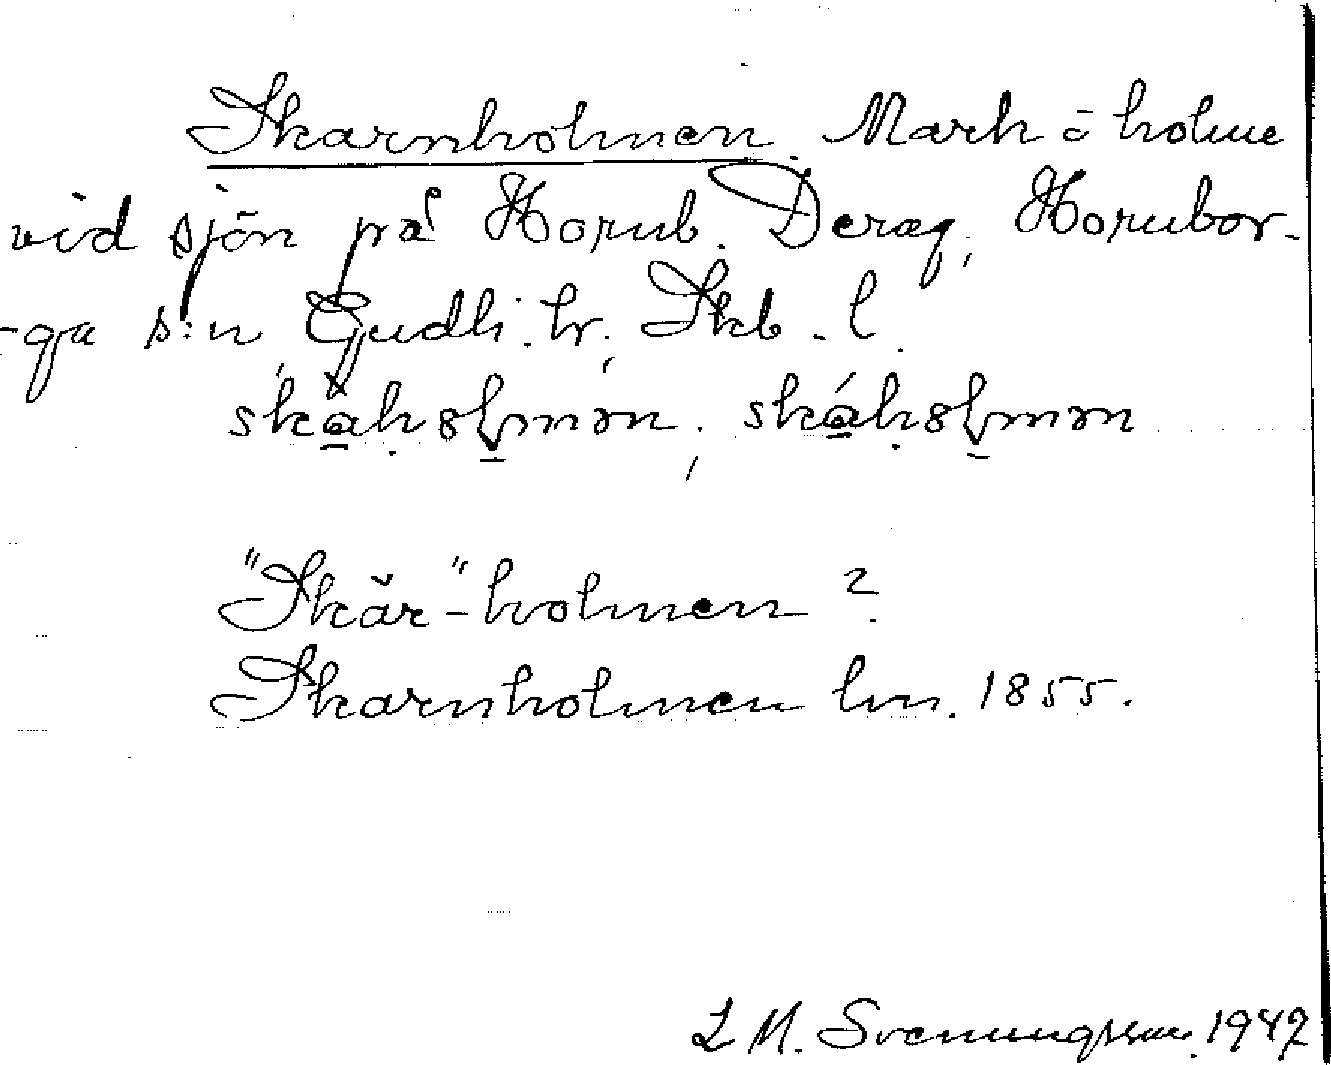 Skarnholmen. Mark o holme
vid sjön på Hornb. Deraq, Hornbor-
-ga s:n, Gudh. hr, Skb. l.
skåhol̥mən, skáhol̥mən
"Skär"-holmen?
Skarnholmen lm. 1855.
L M. Svenungsson. 1942